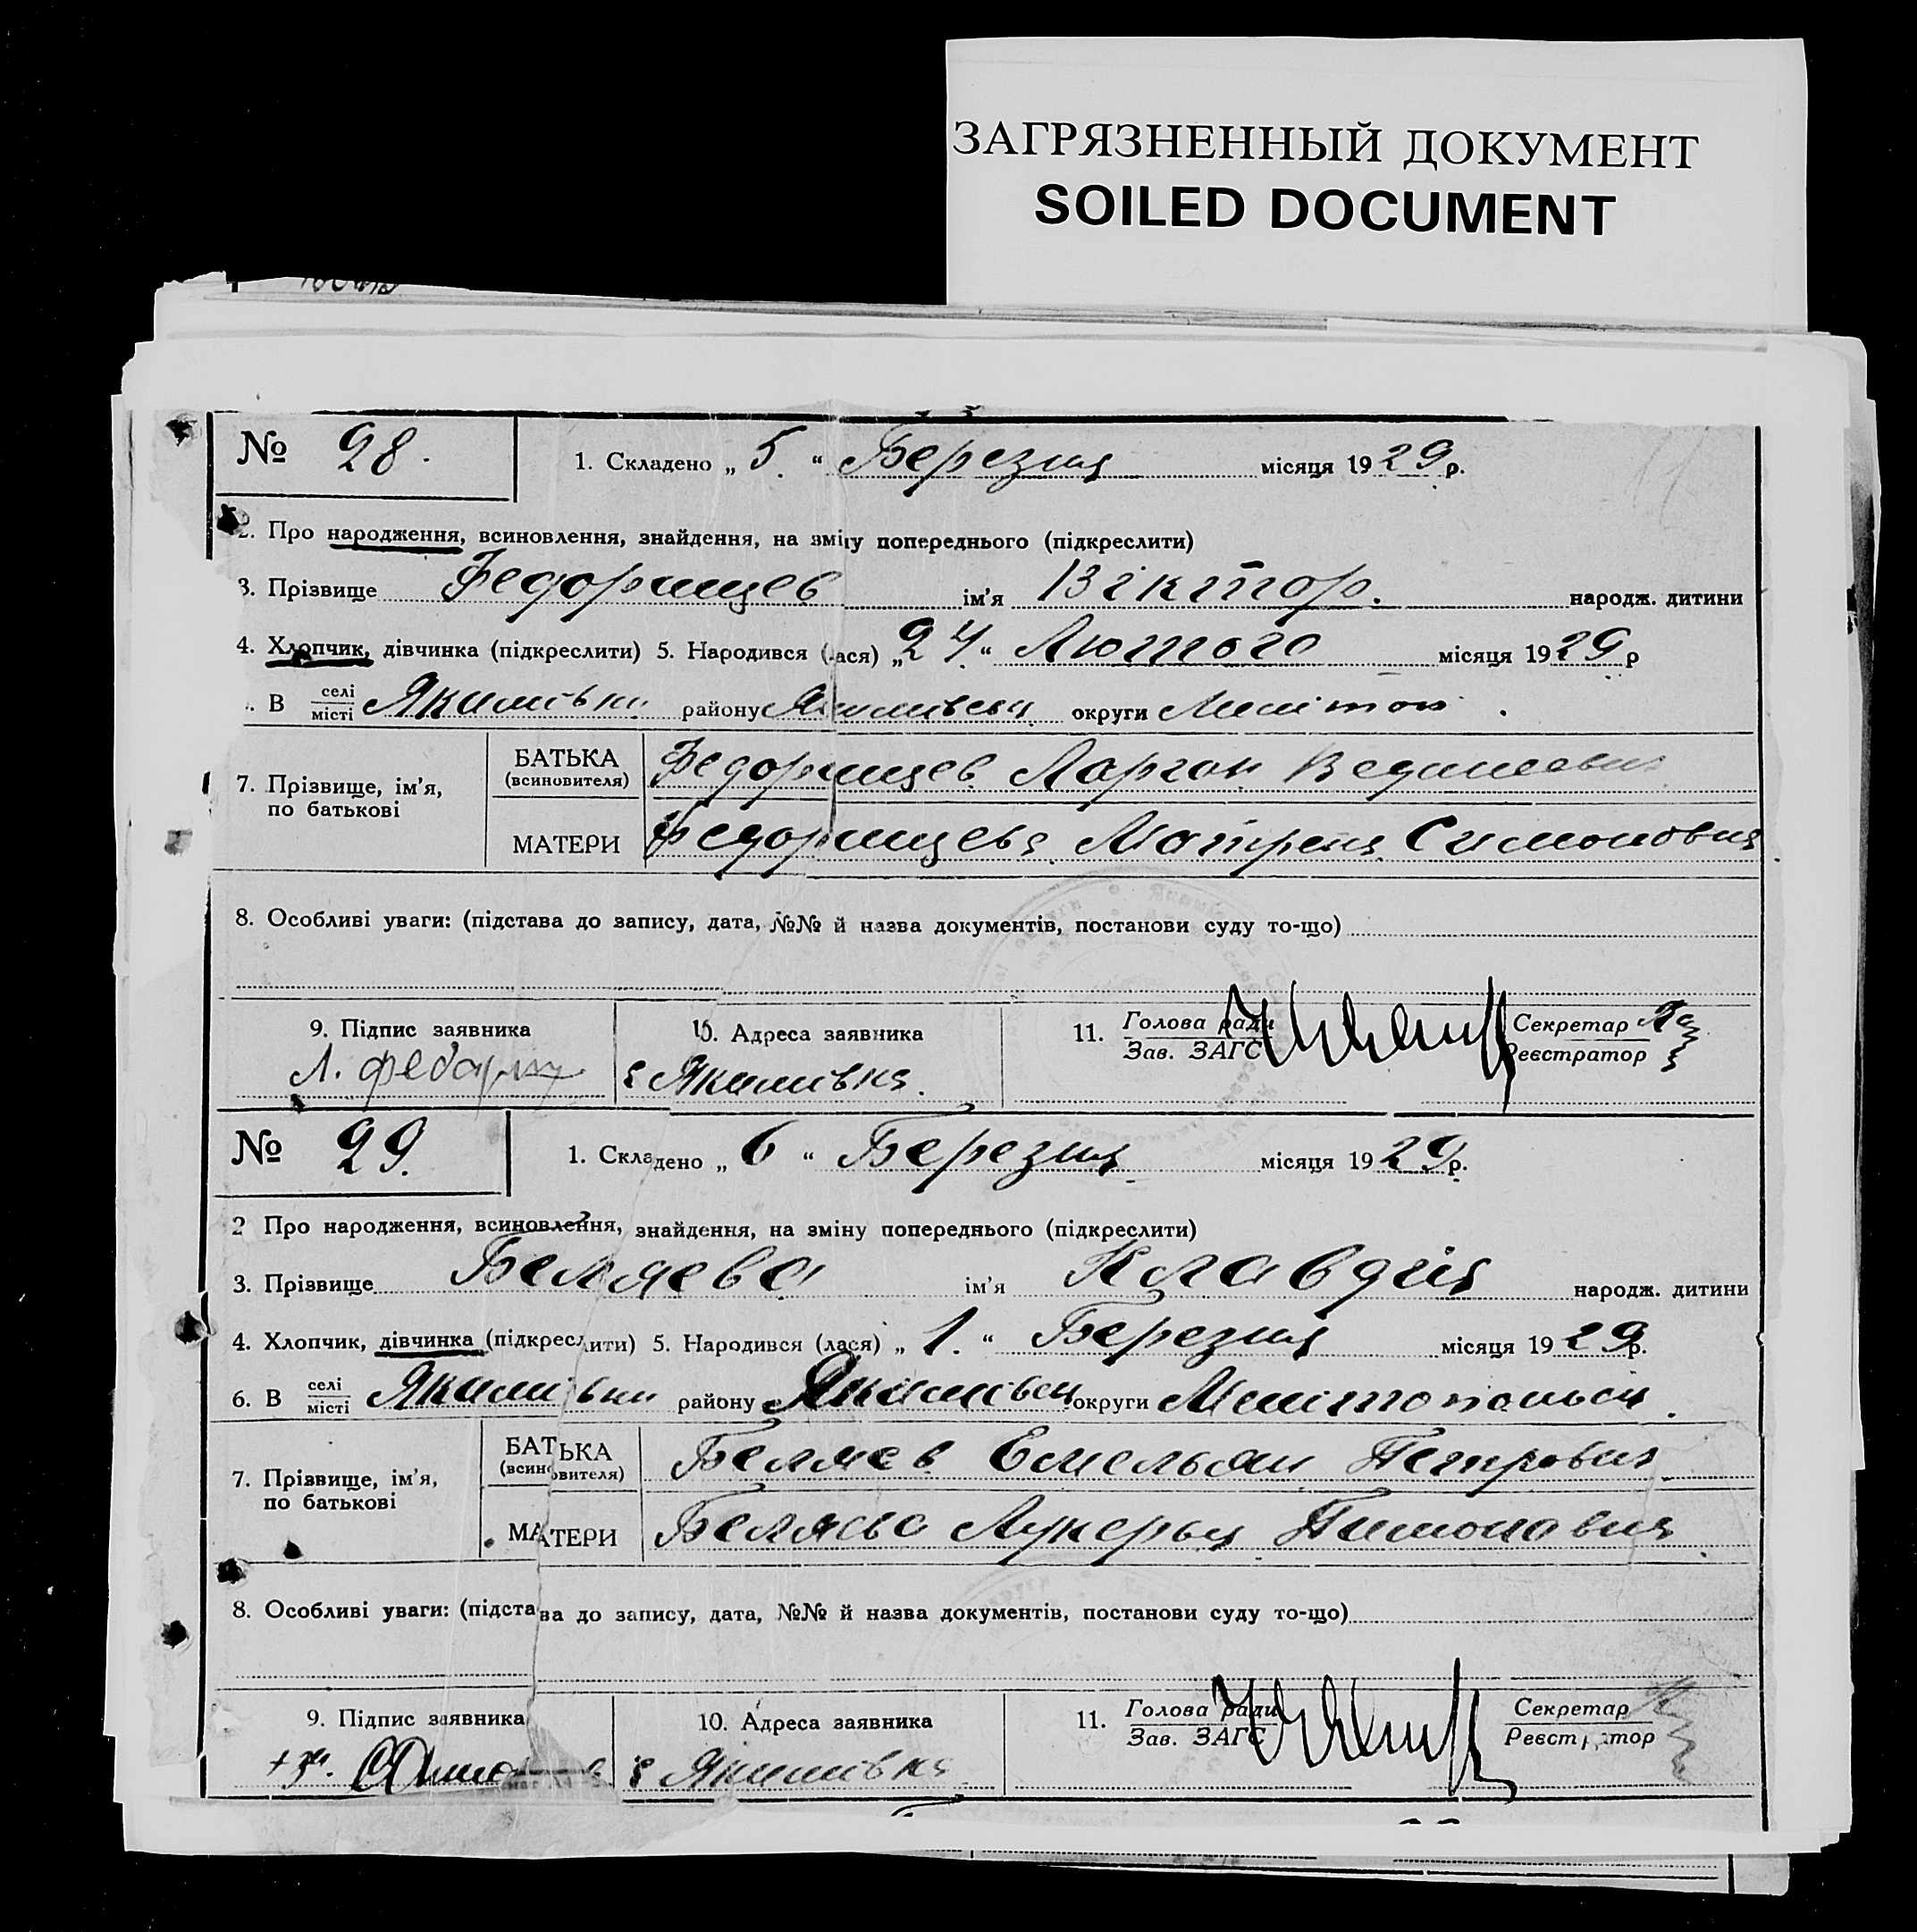 ЗАГРЯЗНЕННЫЙ ДОКУМЕНТ
SOILED DOCUMENT
№ 28.
1. Складено „ 5 “ Березня місяця 1929 р.
2. Про народження, всиновлення, знайдення, на зміну попереднього (підкреслити)
3. Прізвище Федорищев ім’я Віктор. народж. дитини
4. Хлопчик, дівчинка (підкреслити) 5. Народився (лася) „24“ Лютого місяця 1929 р
В селі місті Якимівки району округи Мелітоп
7. Прізвище, ім’я, по батькові
БАТЬКА (всиновителя) Федорищев
МАТЕРИ Федорищева Матрена Симоновна
8. Особливі уваги: (підстава до запису, дата, №№ й назва документів, постанови суду то-що)
9. Підпис заявника
10. Адреса заявника
11. Голова ради Зав. ЗАГС
Секретар Реєстратор
Л.
с Якимівка.
№ 29.
1. Складено „ 6 “ Березня місяця 1929 р.
2 Про народження, всиновлення, знайдення, на зміну попереднього (підкреслити)
3. Прізвище Беляева ім’я Клавдия народж. дитини
4. Хлопчик, дівчинка (підкреслити) 5. Народився (лася) „ 1. “ Березня місяця 1929 р.
6. В селі місті Якимівки району округи
7. Прізвище, ім’я, по батькові
БАТЬКА (всиновителя) Беляев Емельян Петрович
МАТЕРИ Беляева Лукерья
8. Особливі уваги: (підстава до запису, дата, №№ й назва документів, постанови суду то-що)
9. Підпис заявника
10. Адреса заявника
11. Голова ради Зав. ЗАГС
Секретар Реєстратор
с Якимівка